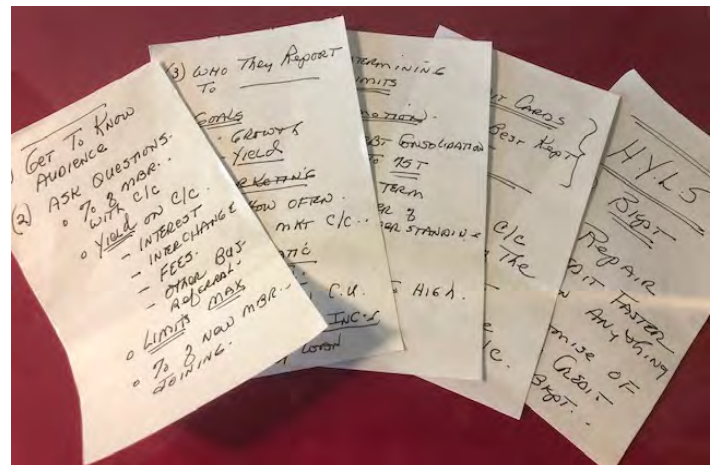 ) GET TO KNOW
AUDIENCE
(2) ASK QUESTIONS.
• % of MBR..
WITH C/C
• Yield ON C/C.
- INTEREST
- INTERCHANGE
- FEES.
- OTHER BUS
REFERRAL.
• LIMITS MAX
• % of NEW MBR..
JOINING.
(3) WHO They REPORT
TO
GOALS
- GROWTH
- YIELD
RKETING
OW OFTEN.
MKT C/C..
ATIC
C.U.
INC.S
LOAN
TERMINING
IMITS
OTION.
EBT CONSOLIDATION
TO 75T
TERM
ER &
ER STANDING
HIGH.
IT CARDS
BEST KEPT
C/C
THE
/C.
HYLS
BKPT
REPAIR
DIT FASTER
N ANYTHING
OMISE OF
CREDIT
BKPT..